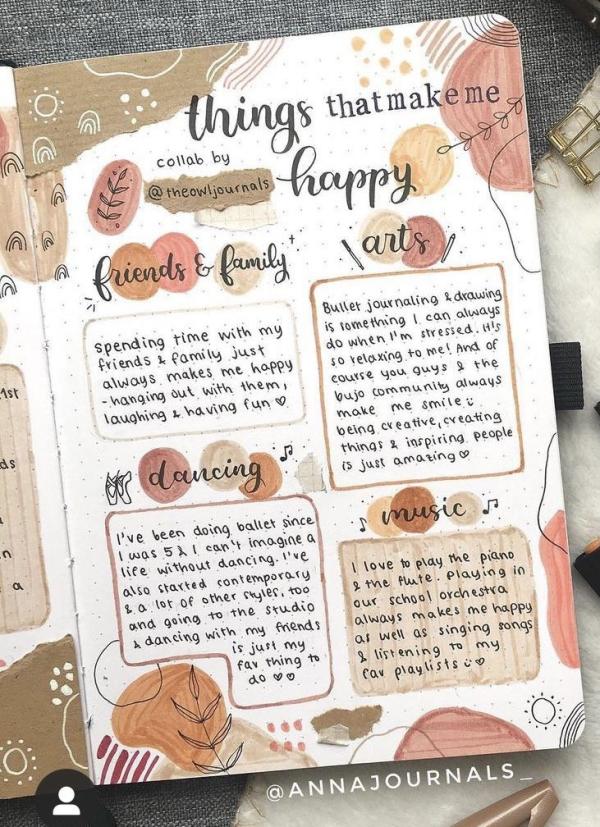 things that make me
collab by
@theowljournals
happy
friends & family
spending time with my
friends & family just
always makes me happy
- hanging out with them,
laughing & having fun ♡
arts
Bullet journaling & drawing
is something I can always
do when I'm stressed. It's
so relaxing to me! And of
course you guys & the
bujo community always
make me smile :)
being creative, creating
things & inspiring people
is just amazing ♡
dancing
I've been doing ballet since
I was 5 & I can't imagine a
life without dancing. I've
also started contemporary
& a lot of other styles, too
and going to the studio
& dancing with my friends
is just my
fav thing to
do ♡♡
music
I love to play the piano
& the flute. Playing in
our school orchestra
always makes me happy
as well as singing songs
& listening to my
fav playlists :) ♡
1st
ds
n
a
@ANNAJOURNALS_